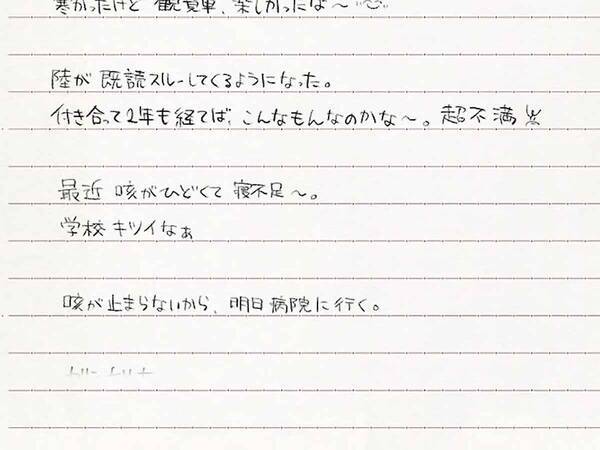 寒かったけど 観覧車、楽しかったな～
陸が 既読スルーしてくるようになった。
付き合って2年も経てば、こんなもんなのかな～。超不満
最近 咳がひどくて 寝不足～。
学校 キツイなぁ
咳が止まらないから、明日病院に行く。